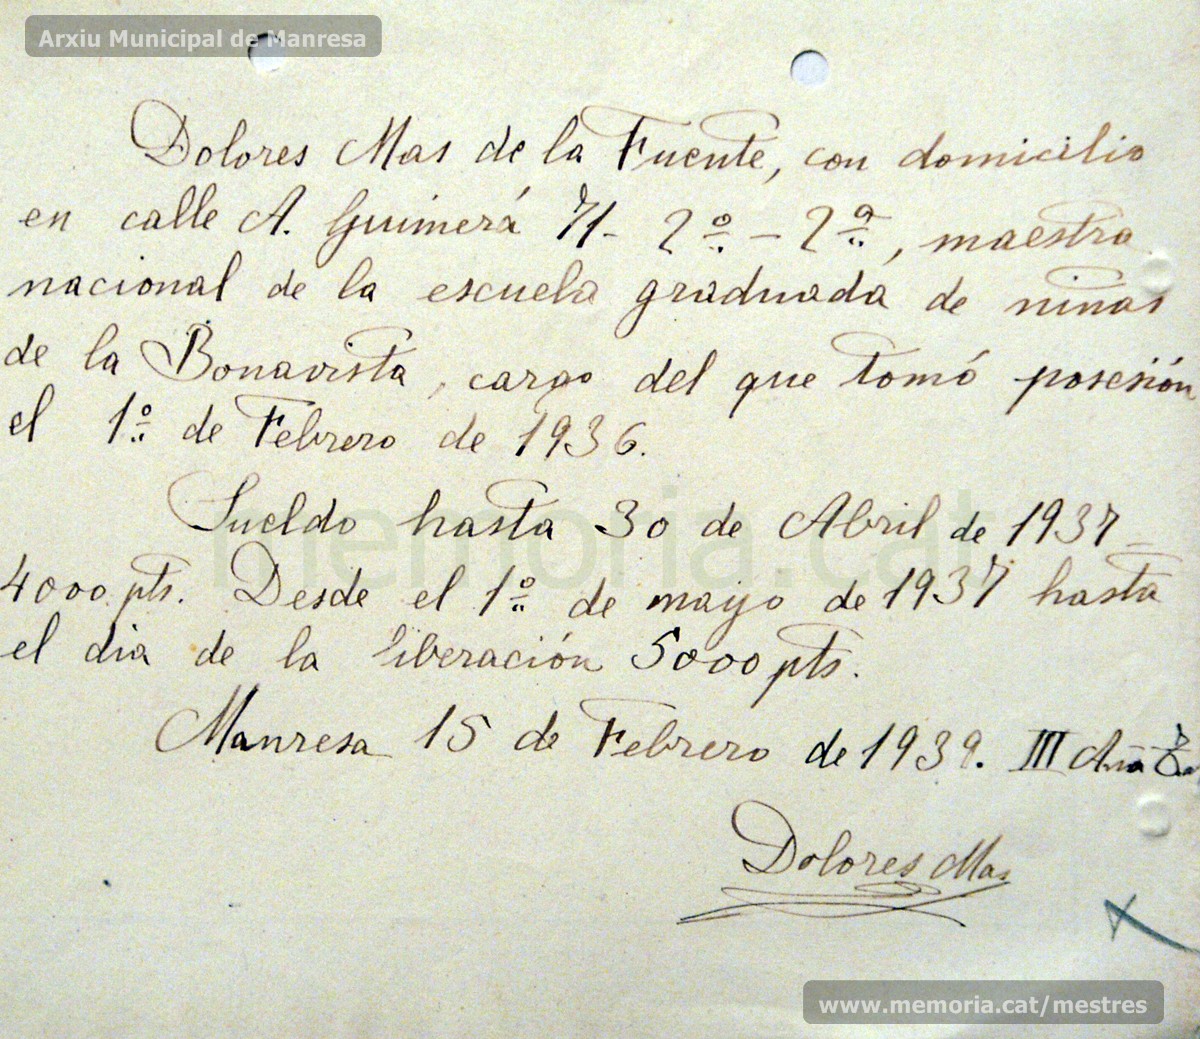 Arxiu Municipal de Manresa
Dolores Mas de la Fuente, con domicilio
en calle A. Guimerá 71- 2º - 2ª, maestra
nacional de la escuela graduada de niñas
de la Bonavista, cargo del que tomó posesión
el 1º de Febrero de 1936.
Sueldo hasta 30 de Abril de 1937
4000 pts. Desde el 1º de mayo de 1937 hasta
el dia de la liberación 5000 pts.
Manresa 15 de Febrero de 1939. III
Dolores Mas
memoria.cat
www.memoria.cat/mestres